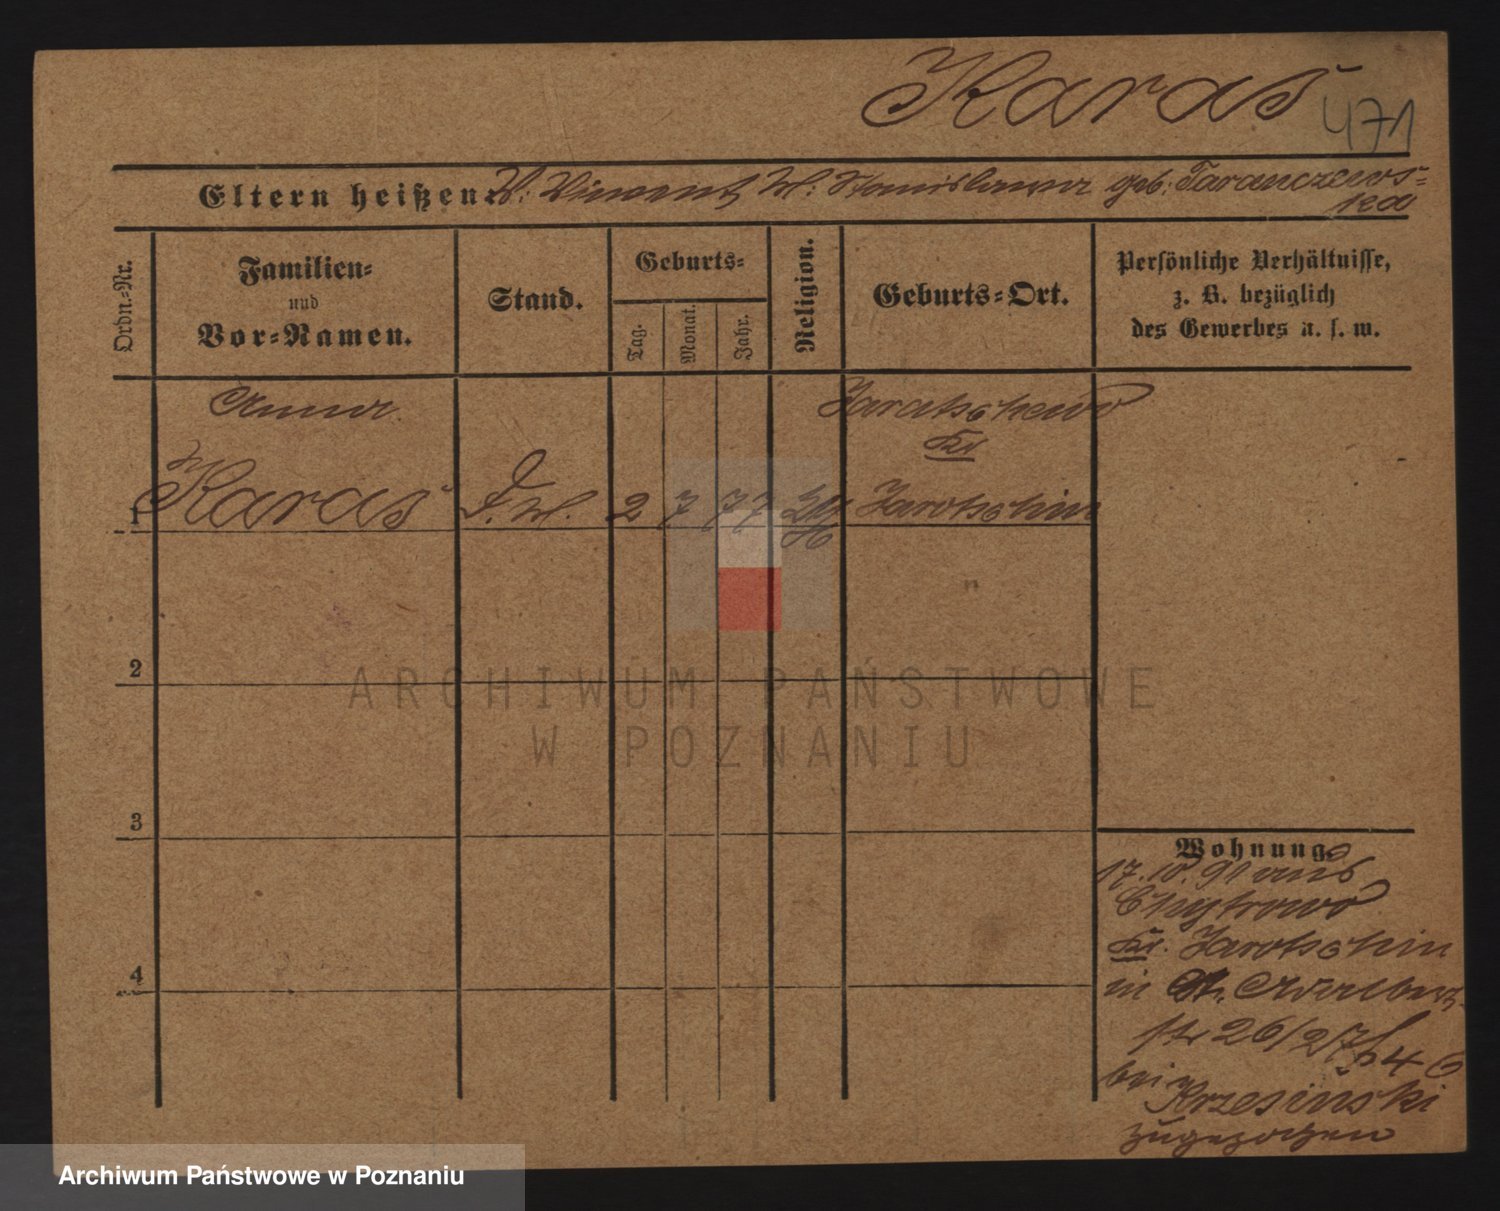 Karaś 471
Eltern heißen: V. Vincent M: Stanislawa geb. Taranczews=
ka
Ordn.-Nr.
Familien=
und
Vor=Namen.
Stand.
Geburts=
Tag.
Monat.
Jahr.
Religion.
Geburts=Ort.
Persönliche Verhältnisse,
z. B. bezüglich
des Gewerbes u. s. w.
Anna
Karaś
1
2 7 77
Jaratschewo
Kr
Jarotschin
2
3
4
Wohnung.
17. 10. 91 aus
Chytrowo
Kr. Jarotschin
in St. Adalbert
str 26/27
bei
Krzesinski
zugezogen
ARCHIWUM PAŃSTWOWE
W POZNANIU
Archiwum Państwowe w Poznaniu